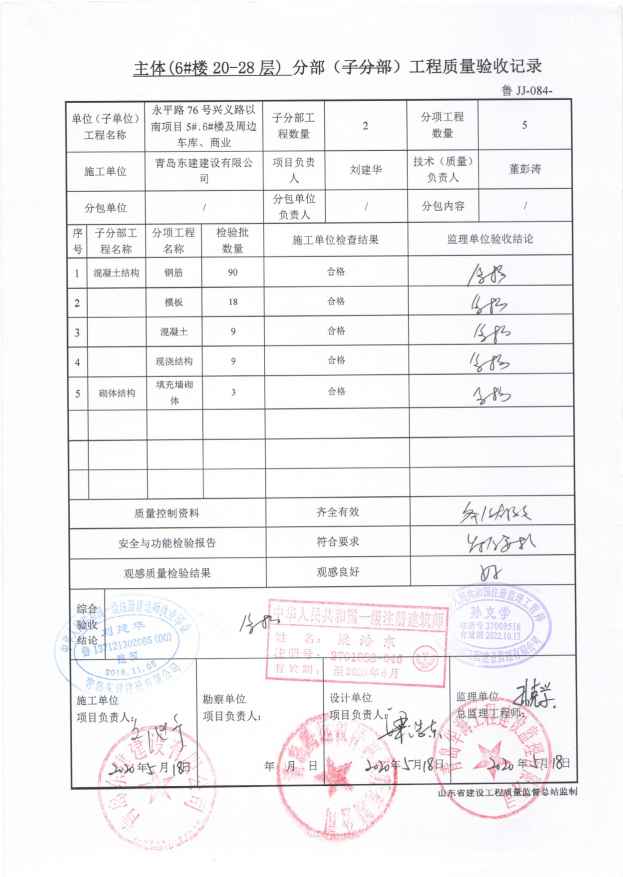 主体(6#楼 20-28 层) 分部（子分部）工程质量验收记录
鲁 JJ-084-
单位（子单位）工程名称 永平路 76 号兴义路以南项目 5#.6#楼及周边车库、商业 子分部工程数量 2 分项工程数量 5
施工单位 青岛东建建设有限公司 项目负责人 刘建华 技术（质量）负责人 董彭涛
分包单位 / 分包单位负责人 / 分包内容 /
序号 子分部工程名称 分项工程名称 检验批数量 施工单位检查结果 监理单位验收结论
1 混凝土结构 钢筋 90 合格 合格
2 模板 18 合格 合格
3 混凝土 9 合格 合格
4 现浇结构 9 合格 合格
5 砌体结构 填充墙砌体 3 合格 合格
质量控制资料 齐全有效
安全与功能检验报告 符合要求
观感质量检验结果 观感良好 好
综合验收结论 合格
刘建华
中华人民共和国一级注册建筑师
施工单位 勘察单位 设计单位 监理单位
项目负责人： 项目负责人： 项目负责人： 总监理工程师：
2020年5月18日 年 月 日 2020年5月18日 2020年5月18日
山东省建设工程质量监督总站监制